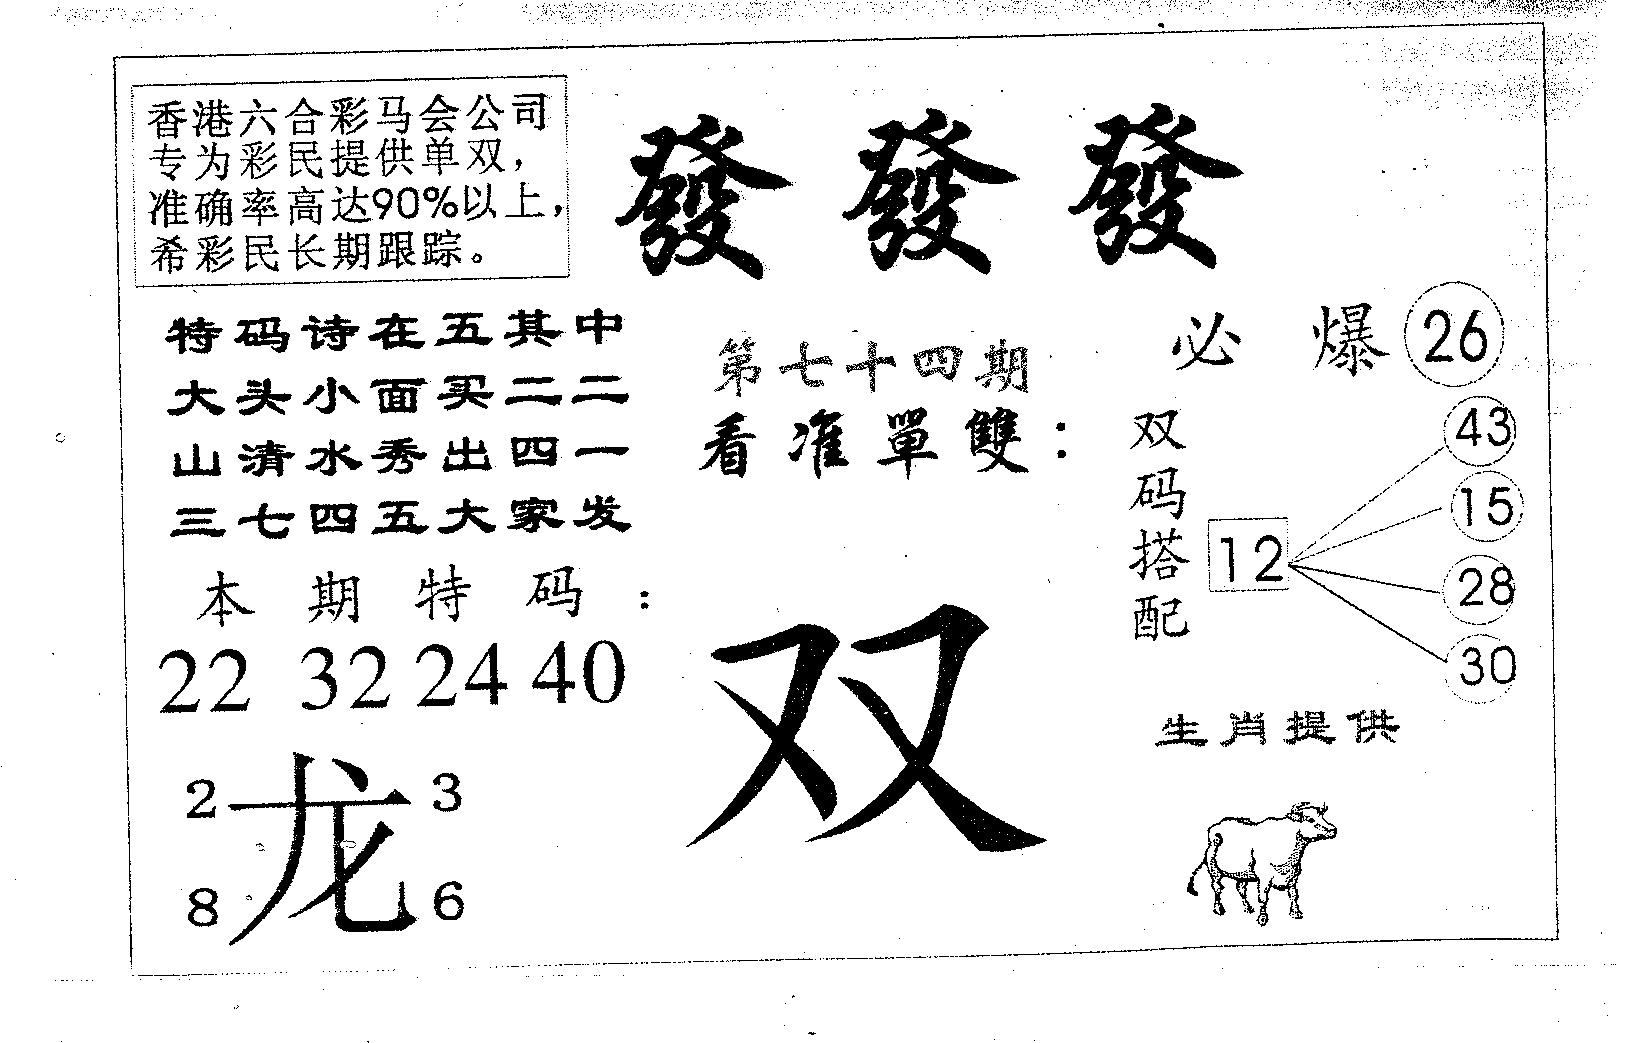 香港六合彩马会公司
专为彩民提供单双，
准确率高达90%以上，
希彩民长期跟踪。
發發發
特码诗在五其中
大头小面买二二
山清水秀出四一
三七四五大家发
本期特码：
22 32 24 40
2 3
龙
8 6
第七十四期
看准單雙：
双
必爆 26
双码搭配
12
43
15
28
30
生肖提供